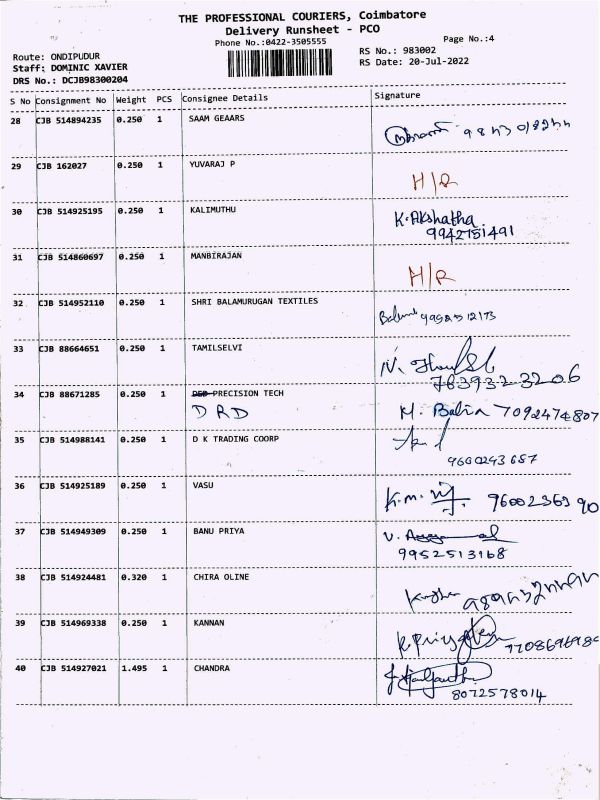 THE PROFESSIONAL COURIERS, Coimbatore
Delivery Runsheet - PCO
Phone No.:0422-3505555
Page No.:4
Route: ONDIPUDUR
RS No.: 983002
Staff: DOMINIC XAVIER
RS Date: 20-Jul-2022
DRS No.: DCJB98300204
S No Consignment No Weight PCS Consignee Details Signature
28 CJB 514894235 0.250 1 SAAM GEAARS
29 CJB 162027 0.250 1 YUVARAJ P H/R
30 CJB 514925195 0.250 1 KALIMUTHU K. Akshatha
9942151491
31 CJB 514860697 0.250 1 MANBIRAJAN H/R
32 CJB 514952110 0.250 1 SHRI BALAMURUGAN TEXTILES
33 CJB 88664651 0.250 1 TAMILSELVI
763932 3206
34 CJB 88671285 0.250 1 PRECISION TECH
DRD M. Babin 7092474807
35 CJB 514988141 0.250 1 D K TRADING COORP
9600293687
36 CJB 514925189 0.250 1 VASU K.m. 9600236390
37 CJB 514949309 0.250 1 BANU PRIYA
9952513168
38 CJB 514924481 0.320 1 CHIRA OLINE
39 CJB 514969338 0.250 1 KANNAN
40 CJB 514927021 1.495 1 CHANDRA
8072578014